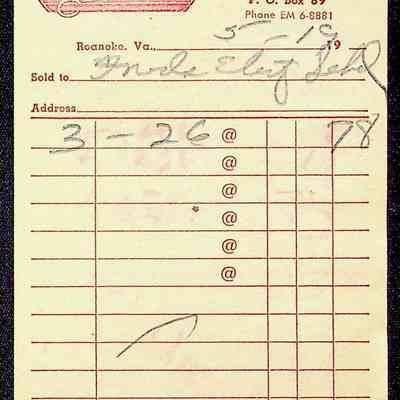 P. O. Box 89
Phone EM 6-8881
Roanoke, Va., 5-19 19
Sold to
Address
3 - 26 @ 78
@
@
@
@
@